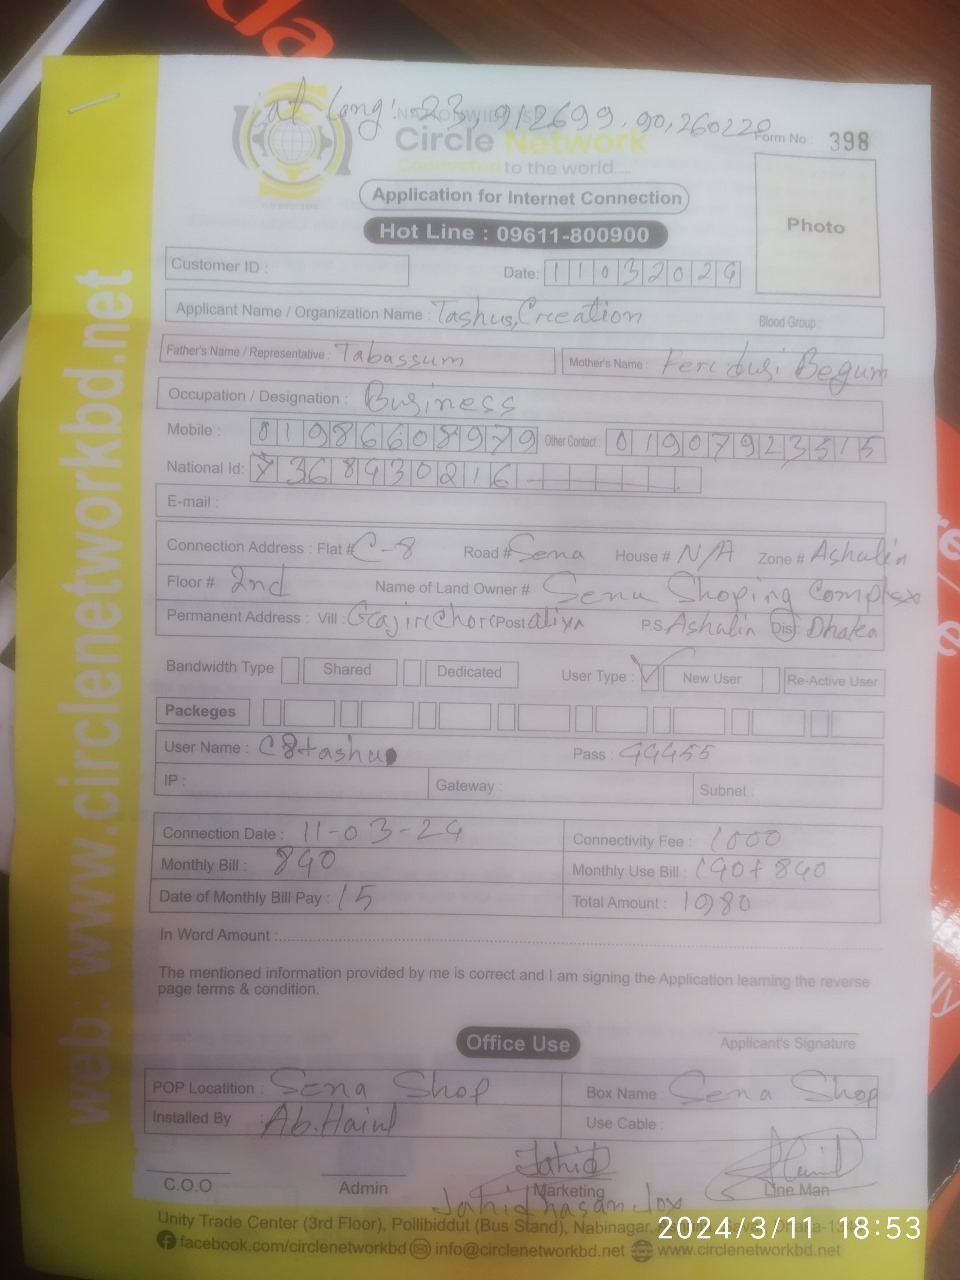 Lat Long: 23.912699, 90,260220
Circle Network
Connected to the world....
Form No : 398
Application for Internet Connection
Photo
Hot Line : 09611-800900
Customer ID :
Date: 11032024
Applicant Name / Organization Name : Tashus, Creation
Blood Group :
Father's Name / Representative : Tabassum
Mother's Name : Ferdusi Begum
Occupation / Designation : Business
Mobile : 01986608979 Other Contact : 01907923515
National Id: 7368430216
E-mail :
Connection Address : Flat # C-8 Road # Sena House # N/A Zone # Ashulia
Floor # 2nd Name of Land Owner # Sena Shoping Complex
Permanent Address : Vill : Post P.S. Ashulia Dis: Dhaka
Bandwidth Type Shared Dedicated User Type : New User Re-Active User
Packeges
User Name : C8tashu Pass : 44455
IP : Gateway : Subnet :
Connection Date : 11-03-24 Connectivity Fee : 1000
Monthly Bill : 840 Monthly Use Bill : 140+840
Date of Monthly Bill Pay : 15 Total Amount : 1980
In Word Amount :
The mentioned information provided by me is correct and I am signing the Application learning the reverse
page terms & condition.
Applicant's Signature
Office Use
POP Locatition : Sena Shop Box Name : Sena Shop
Installed By : Ab. Use Cable :
Jahid
C.O.O Admin Marketing Line Man
Jahid hasan
Unity Trade Center (3rd Floor), Pollibiddut (Bus Stand), Nabinagar,
facebook.com/circlenetworkbd info@circlenetworkbd.net www.circlenetworkbd.net
web: www.circlenetworkbd.net
2024/3/11 18:53